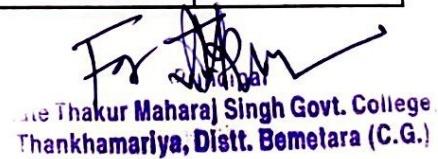 For
Principal
Late Thakur Maharaj Singh Govt. College
Thankhamariya, Distt. Bemetara (C.G.)